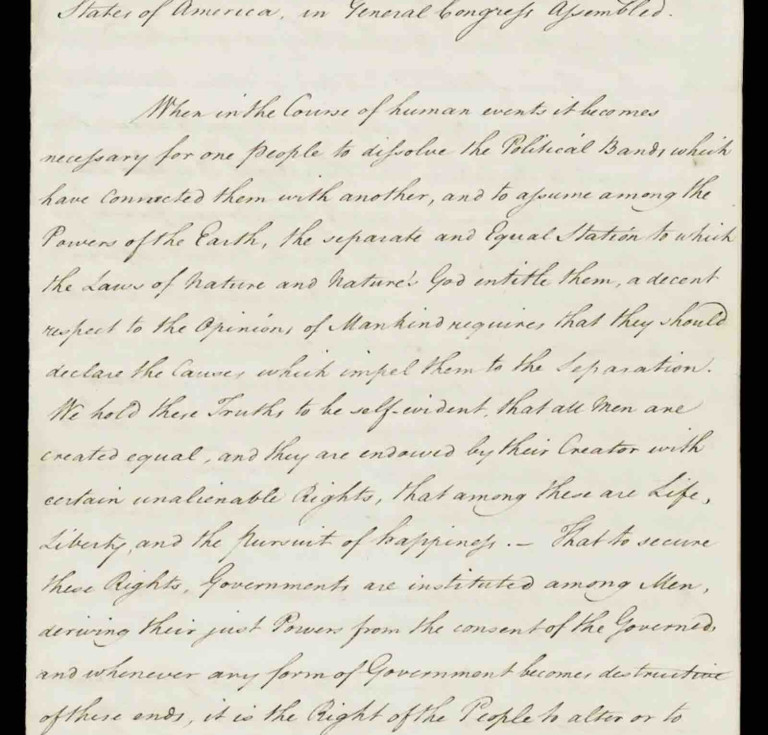 States of America, in General Congress Assembled.
When in the Course of human events it becomes
necessary for one People to dissolve the Political Bands which
have connected them with another, and to assume among the
Powers of the Earth, the separate and Equal Station to which
the Laws of Nature and Nature's God entitle them, a decent
respect to the Opinions of Mankind requires that they should
declare the Causes which impel them to the Separation.
We hold these Truths to be self-evident, that all Men are
created equal, and they are endowed by their Creator with
certain unalienable Rights, that among these are Life,
Liberty, and the pursuit of happiness. — That to secure
these Rights, Governments are instituted among Men,
deriving their just Powers from the consent of the Governed,
and whenever any form of Government becomes destructive
of these ends, it is the Right of the People to alter or to